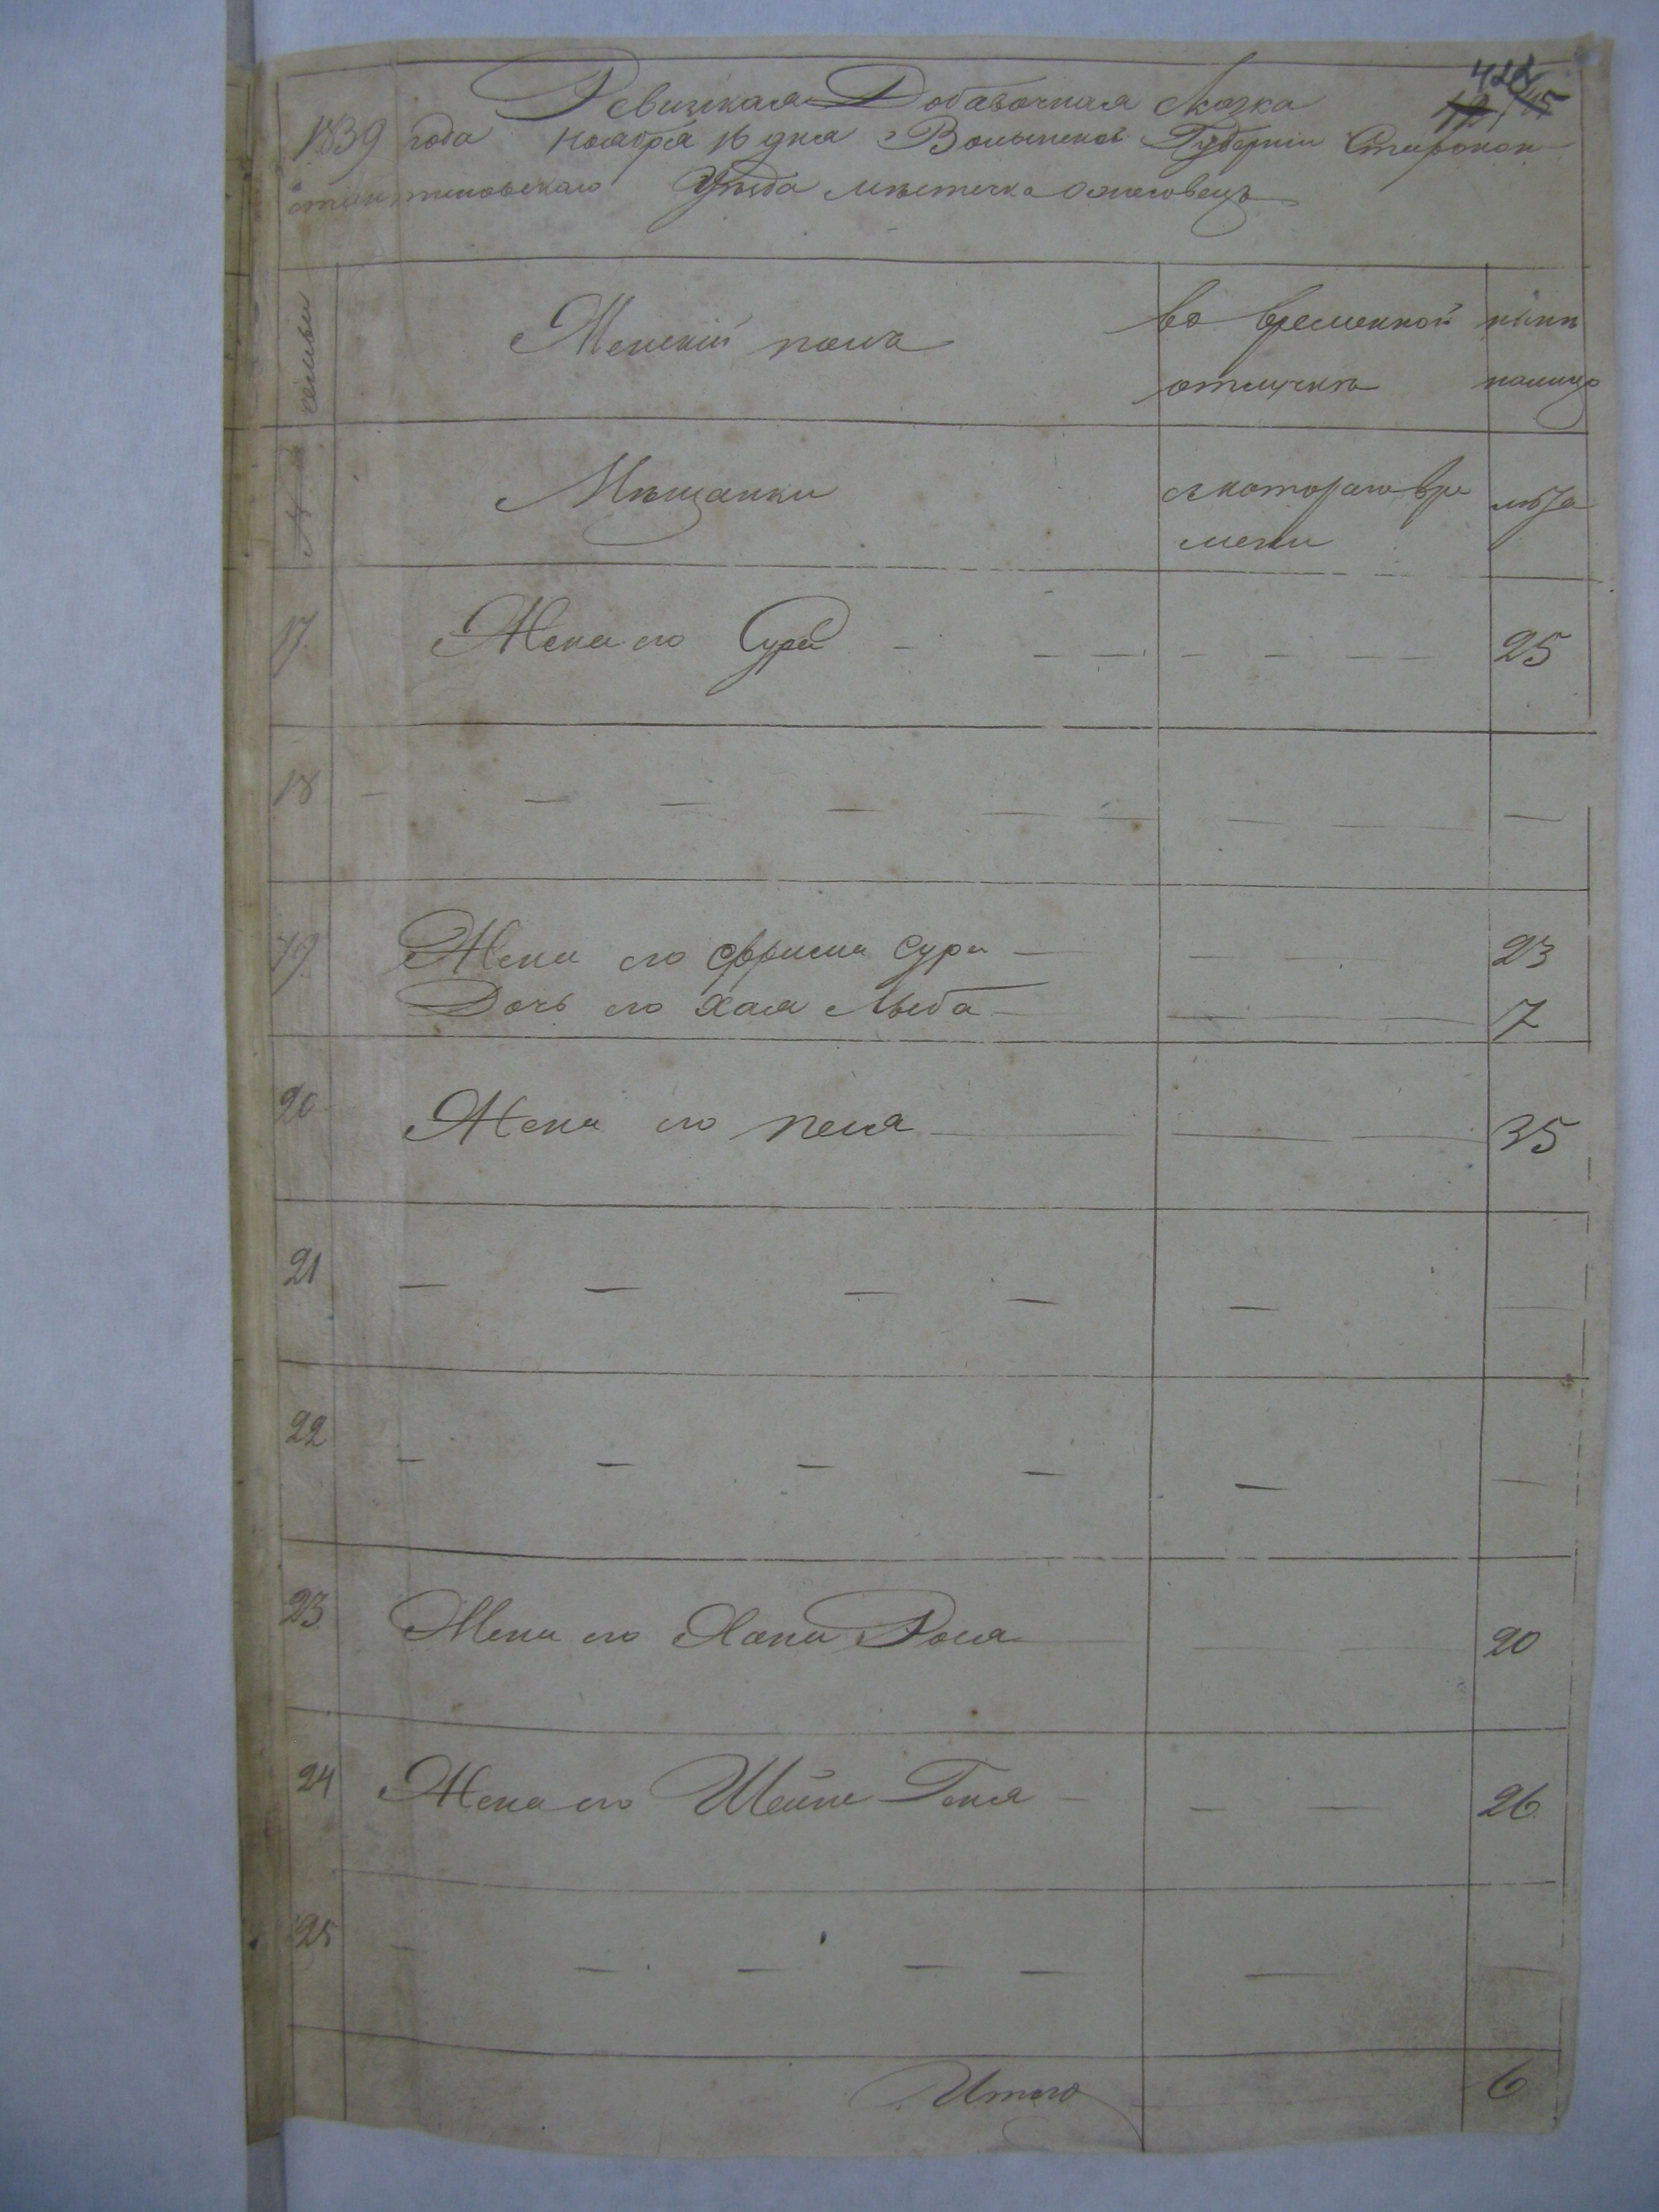 Ревизская Добавочная Сказка
1839 года Ноября 16 дня Волынской Губернии Старокон
стантиновскаго Уезда местечка Ожоговецъ
№ семьи
Женскій полъ
во временной отлучкѣ
нынѣ налицо
Мѣщанки
съ котораго вре
мени
лѣта
17 Жена его Сура 25
18
19 Жена его Сура 23
Дочь его Хая Лыба 7
20 Жена его Песя 35
21
22
23 Жена его Хана Рося 20
24 Жена его Шейне Геня 26
25
Итого 6